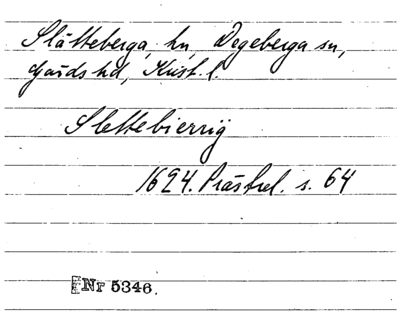 Slätteberga, hn, Degeberga sn,
Gärds hd, Krist. l.
Slettebierrig
1624. Prästrel. s. 64
Nr 5346.